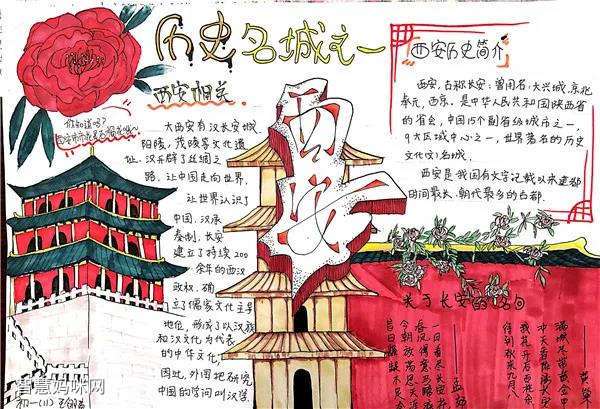 历史名城之一
西安历史简介
西安，古称长安，曾用名：大兴城、京兆
奉元，西京，是中华人民共和国陕西省
的省会，中国15个副省级城市之一，
9大区域中心之一，世界著名的历史
文化名城。
西安是我国有文字记载以来建都
时间最长、朝代最多的古都。
西安相关
你知道吗？
西安
大西安有汉长安城
阳陵，茂陵等文化遗
址，汉开辟了丝绸之
路，让中国走向世界，
让世界认识了
中国，汉承
秦制，长安
建立了持续200
余年的西汉
政权，确
立了儒家文化主导
地位，形成了以汉族
和汉文化为代表
的中华文化，
因此，外国把研究
中国的学问叫汉学。
关于长安的名句
待到秋来九月八
我花开后百花杀
冲天香阵透长安
满城尽带黄金甲
黄巢
春风得意马蹄
一日看尽长安
孟郊
初一(11)
智慧妈咪网